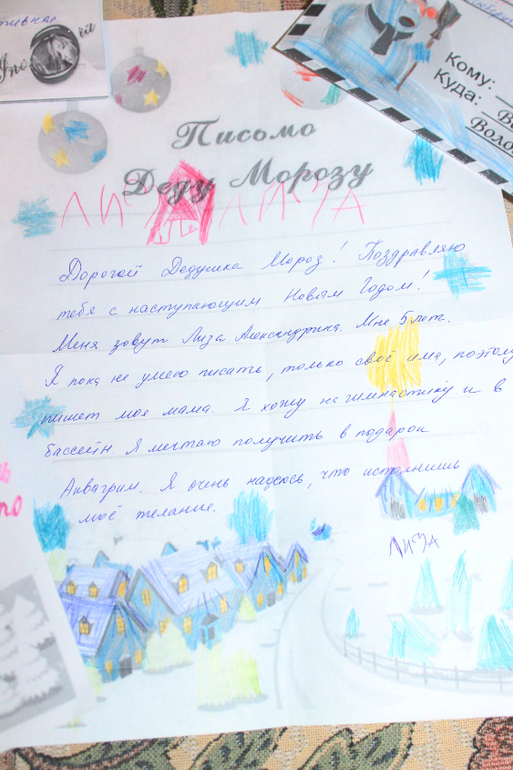 Кому:
Куда:
Воло
Письмо
Деду Морозу
ЛИЗА ЛИЗА
Дорогой Дедушка Мороз! Поздравляю
тебя с наступающим Новым Годом!
Меня зовут Лиза Александрина. Мне 5 лет.
Я пока не умею писать, только своё имя, поэтому
пишет моя мама. Я хожу на гимнастику и в
бассейн. Я мечтаю получить в подарок
Аквагрим. Я очень надеюсь, что исполнишь
моё желание.
ЛИЗА